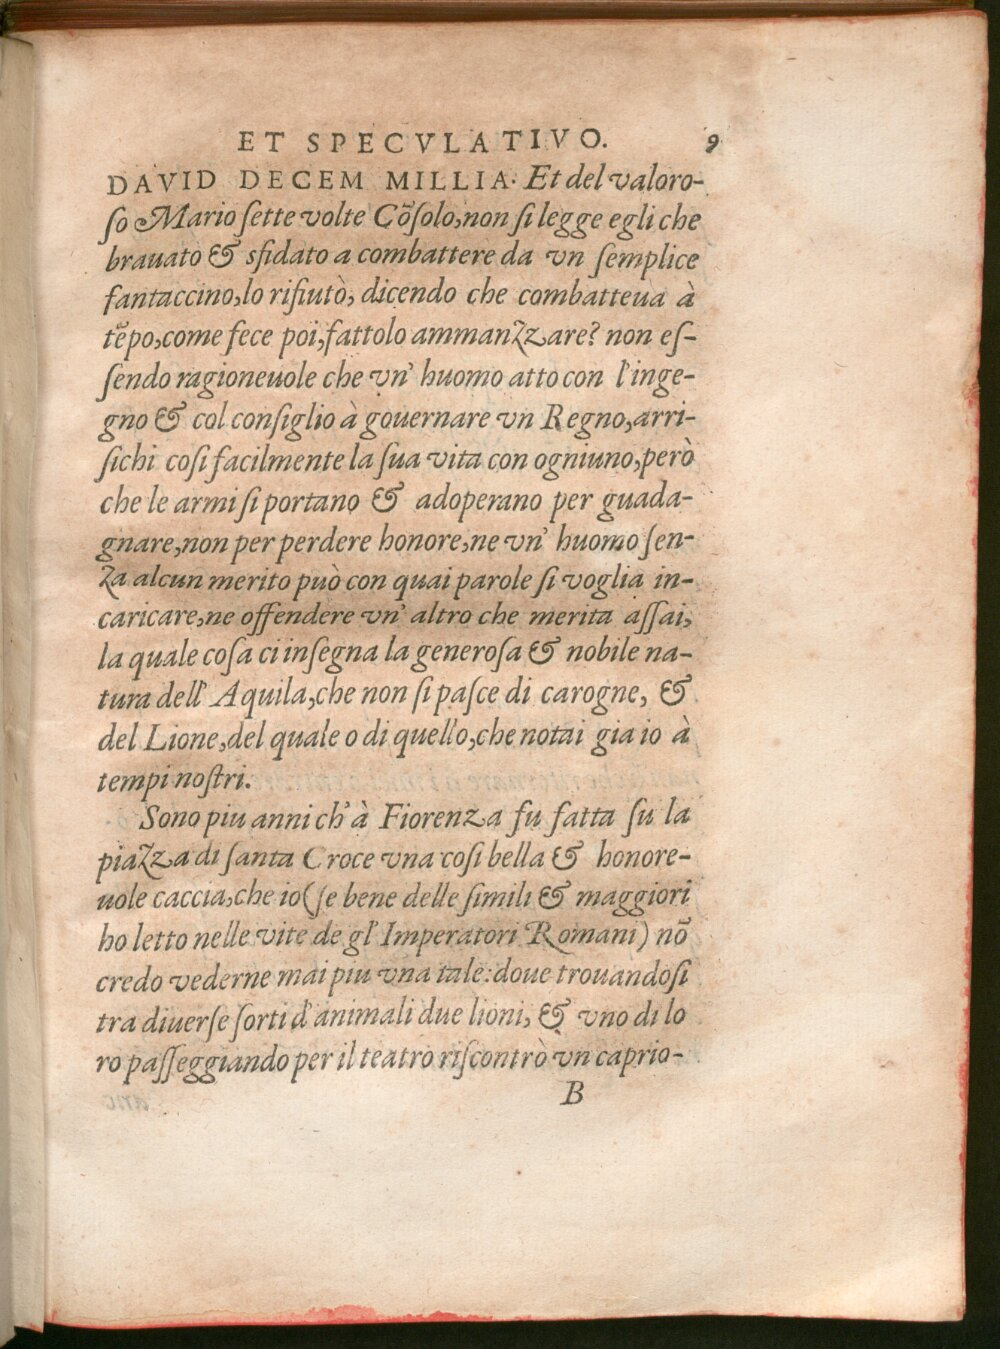 ET SPECVLATIVO. 9
DAVID DECEM MILLIA. Et del valoro-
so Mario sette volte Cõsolo, non si legge egli che
brauato & sfidato a combattere da vn semplice
fantaccino, lo rifiutò, dicendo che combatteua à
tẽpo, come fece poi, fattolo ammanzzare? non es-
sendo ragioneuole che vn' huomo atto con l'inge-
gno & col consiglio à gouernare vn Regno, arri-
sichi cosi facilmente la sua vita con ogniuno, però
che le armi si portano & adoperano per guada-
gnare, non per perdere honore, ne vn' huomo sen-
za alcun merito può con quai parole si voglia in-
caricare, ne offendere vn' altro che merita assai,
la quale cosa ci insegna la generosa & nobile na-
tura dell' Aquila, che non si pasce di carogne, &
del Lione, del quale o di quello, che notai gia io à
tempi nostri.
Sono piu anni ch' à Fiorenza fu fatta su la
piazza di santa Croce vna cosi bella & honore-
uole caccia, che io (se bene delle simili & maggiori
ho letto nelle vite de gl' Imperatori Romani) nõ
credo vederne mai piu vna tale: doue trouandosi
tra diuerse sorti d'animali due lioni, & vno di lo
ro passeggiando per il teatro riscontrò vn caprio-
B